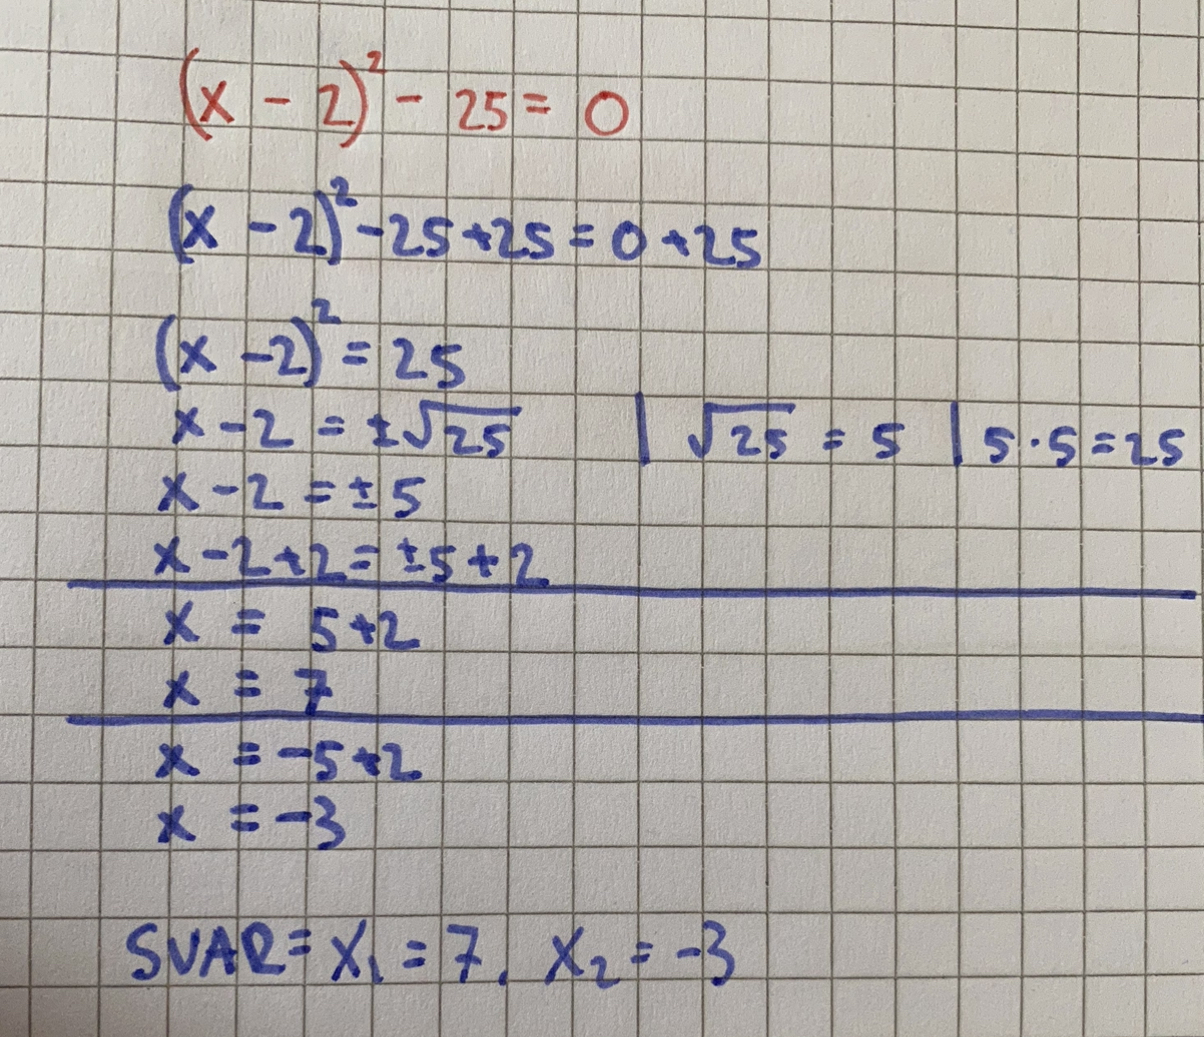 (x - 2)² - 25 = 0
(x - 2)² - 25 + 25 = 0 + 25
(x - 2)² = 25
x - 2 = ±√25 | √25 = 5 | 5 · 5 = 25
x - 2 = ± 5
x - 2 + 2 = ±5 + 2
x = 5 + 2
x = 7
x = -5 + 2
x = -3
SVAR = X₁ = 7, X₂ = -3